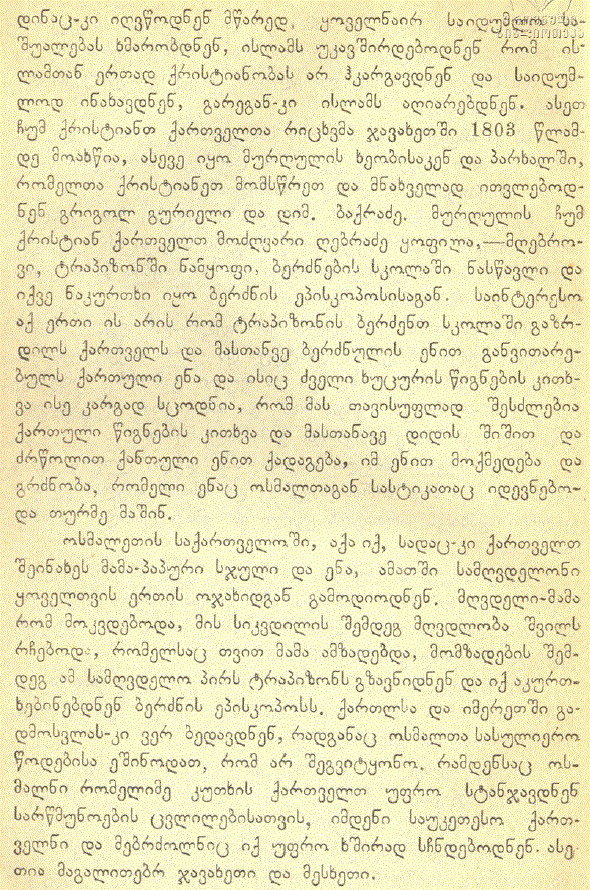 დინაც-კი იღვწოდნენ მწარედ, ყოველნაირ საიდუმლო სა-
შუალებას ხმარობდნენ, ისლამს უკავშირდებოდნენ რომ ის-
ლამთან ერთად ქრისტიანობას არ ჰკარგავდნენ და საიდუმ-
ლოდ ინახავდნენ, გარეგან-კი ისლამს აღიარებდნენ. ასეთ
ჩუმ ქრისტიანთ ქართველთა რიცხვმა ჯავახეთში 1803 წლამ-
დე მოახწია, ასევე იყო მურღულის ხეობისაკენ და პარხალში,
რომელთა ქრისტიანეთ მომსწრეთ და მნახველად ითვლებოდ-
ნენ გრიგოლ გურიელი და დიმ. ბაქრაძე. მურღულის ჩუმ
ქრისტიან ქართველთ მოძღვარი ღებრაძე ყოფილა,—მღებრო-
ვი, ტრაპიზონში ნამყოფი, ბერძნების სკოლაში ნასწავლი და
იქვე ნაკურთხი იყო ბერძნის ეპისკოპოსისაგან. საინტერესო
აქ ერთი ის არის რომ ტრაპიზონის ბერძენთ სკოლაში გაზრ-
დილს ქართველს და მასთანვე ბერძნულის ენით განვითარე-
ბულს ქართული ენა და ისიც ძველი ხუცურის წიგნების კითხ-
ვა ისე კარგად სცოდნია, რომ მას თავისუფლად შესძლებია
ქართული წიგნების კითხვა და მასთანავე დიდის შიშით და
ძრწოლით ქანთული ენით ქადაგება, იმ ენით მოქმედება და
გრძნობა, რომელი ენაც ოსმალთაგან სასტიკათაც იდევნებო-
და თურმე მაშინ.
ოსმალეთის საქართველოში, აქა იქ, სადაც-კი ქართველთ
შეინახეს მამა-პაპური სჯული და ენა, ამათში სამღვდელონი
ყოველთვის ერთის ოჯახიდგან გამოდიოდნენ. მღვდელი-მამა
რომ მოკვდებოდა, მის სიკვდილის შემდეგ მღვდლობა შვილს
რჩებოდა, რომელსაც თვით მამა ამზადებდა, მომზადების შემ-
დეგ ამ სამღვდელო პირს ტრაპიზონს გზავნიდნენ და იქ აკურთ-
ხებინებდნენ ბერძნის ეპისკოპოსს. ქართლსა და იმერეთში გა-
დმოსვლას-კი ვერ ბედავდნენ, რადგანაც ოსმალთა სასულიერო
წოდებისა ეშინოდათ, რომ არ შეგვიტყონო. რამდენსაც ოს-
მალნი რომელიმე კუთხის ქართველთ უფრო სტანჯავდნენ
სარწმუნოების ცვლილებისათვის, იმდენი საუკეთესო ქართ-
ველნი და მებრძოლნიც იქ უფრო ხშირად სჩნდებოდნენ. ასე-
თია მაგალითებრ ჯავახეთი და მესხეთი.